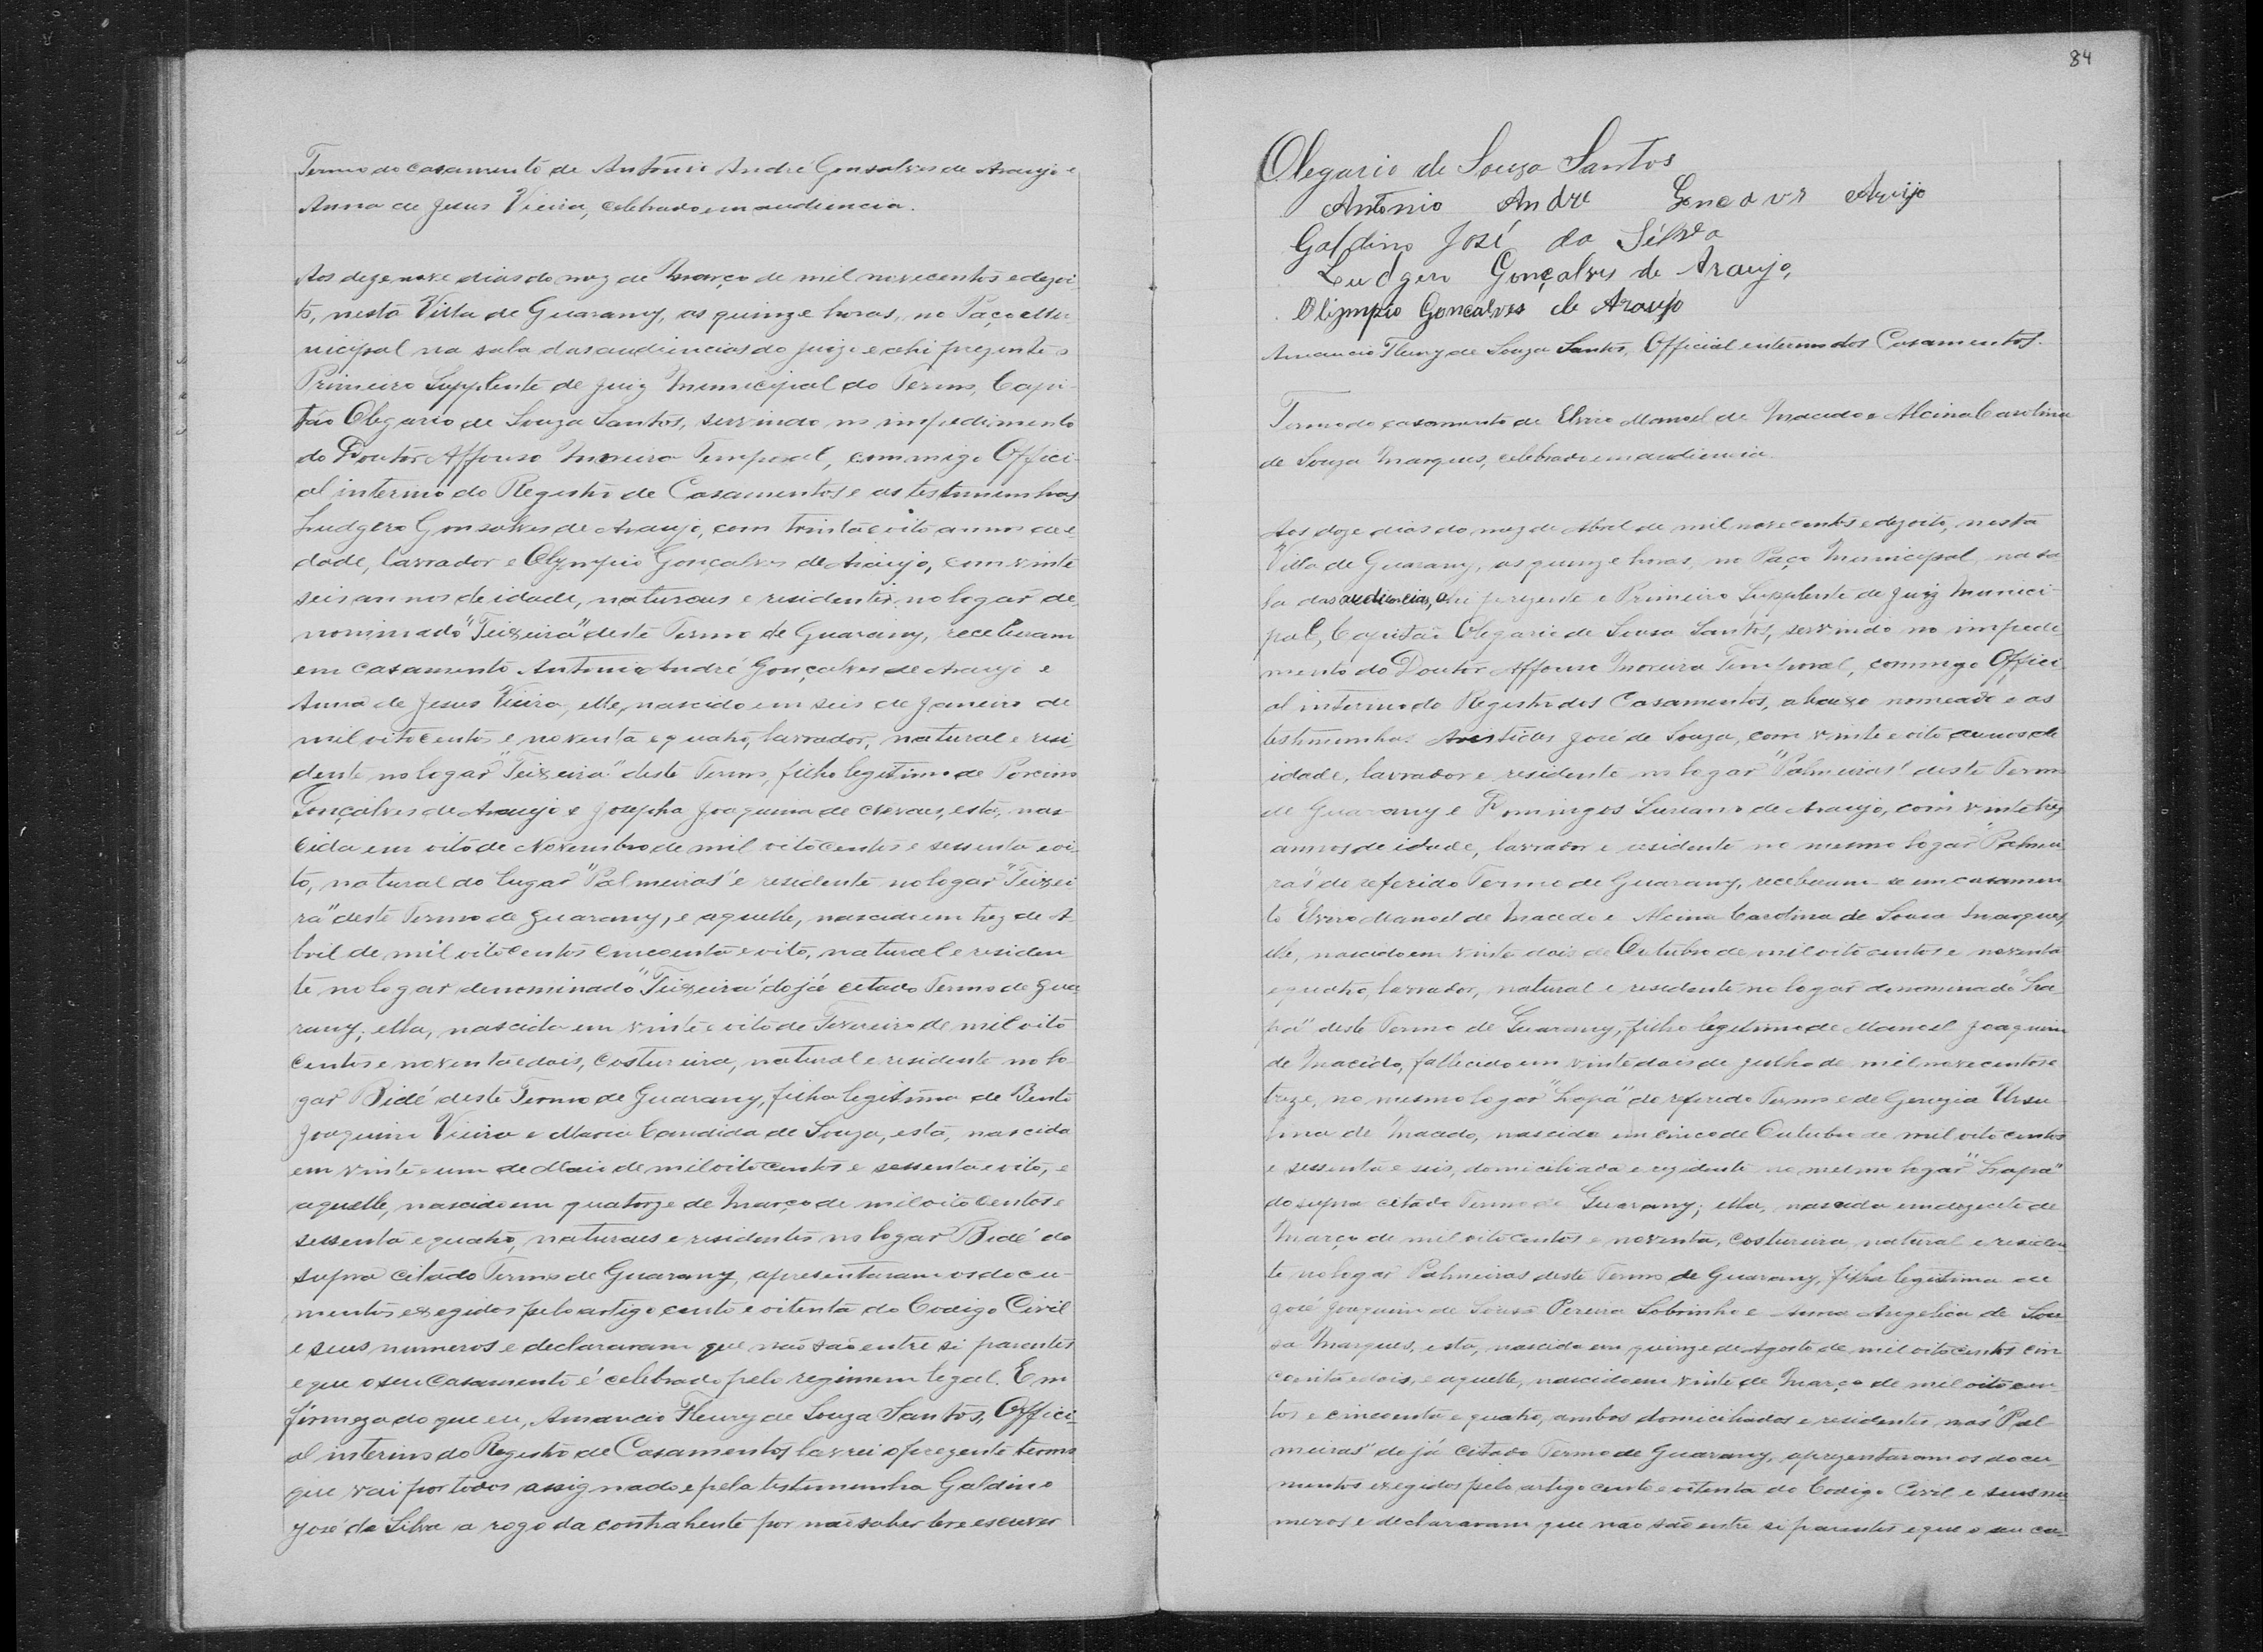 Termo do casamento de Antonio André Gonsalves de Araujo e
Anna de Jesus Vieira, celebrado em audiencia.
Aos dezenove dias do mez de Março de mil novecentos e dezoi-
to, nesta Villa de Guarany, as quinze horas, no Paço Mu-
nicipal na sala das audiencias do juizo e ahi prezente o
Primeiro Supplente de Juiz Municipal do Termo, Capi-
tão Olegario de Souza Santos, servindo no impedimento
do Doutor Affonso Moreira Temporal, commigo Offici-
al interino do Registro de Casamentos e as testemunhas
Ludgero Gonsalves de Araujo, com trinta e oito annos de i-
dade, lavrador e Olympio Gonçalves de Araujo, com vinte
seis annos de idade, naturaes e residentes no logar de-
nominado "Teixeira" deste Termo de Guarany, receberam
em casamento Antonio André Gonçalves de Araujo e
Anna de Jesus Vieira, elle, nascido em seis de Janeiro de
mil oitocentos e noventa e quatro, lavrador, natural e resi-
dente no logar "Teixeira" deste Termo, filho legitimo de Porcino
Gonçalves de Araujo e Josepha Joaquina de Moraes, esta, nas-
cida em oito de Novembro de mil oitocentos e sessenta e oi-
to, natural do lugar "Palmeiras" e residente no logar "Teixei-
ra" deste Termo de Guarany, e aquelle, nascido em trez de A-
bril de mil oitocentos cincoenta e oito, natural e residen-
te no logar denominado "Teixeira" do já citado Termo de Gua-
rany; ella, nascida em vinte e oito de Fevereiro de mil oito
centos e noventa e dois, costureira, natural e residente no lo-
gar Bidé deste Termo de Guarany, filha legitima de Bento
Joaquim Vieira e Maria Candida de Souza, esta, nascida
em vinte e um de Maio de mil oitocentos e sessenta e oito, e
aquelle, nascido em quatorze de Março de mil oitocentos e
sessenta e quatro, naturaes e residentes no logar Bidé do
supra citado Termo de Guarany, apresentaram os docu-
mentos exegidos pelo artigo cento e oitenta do Codigo Civil
e seus numeros e declararam que não são entre si parentes
e que o seu casamento é celebrado pelo regimem legal. Em
firmeza do que eu, Amancio Fleury de Souza Santos, Offici-
al interino do Registro de Casamentos lavrei o prezente termo
que vai por todos assignado e pela testemunha Galdino
José da Silva a rogo da contrahente por não saber ler e escrever
84
Olegario de Souza Santos
Antonio Andre Goncavs Aruijo
Galdino José da Silva
Ludgero Gonçalves de Araujo,
Olimpio Goncalves de Araujo
Amancio Fleury de Souza Santos, Official interino dos Casamentos.
Termo do casamento de Elviro Manoel de Macedo e Alcina Carolina
de Souza Marques, celebrado em audiencia.
Aos doze dias do mez de Abril de mil novecentos e dezoito, nesta
Villa de Guarany, as quinze horas, no Paço Municipal, na sa-
la das audiencias, ahi prezente o Primeiro Supplente de Juiz Munici-
pal, Capitão Olegario de Sousa Santos, servindo no impedi-
mento do Doutor Affonso Moreira Temporal, commigo Offici-
al interino do Registro dos Casamentos, abaixo nomeado e as
testemunhas Aristides José de Souza, com vinte e oito annos de
idade, lavrador e residente no logar "Palmeiras" deste Termo
de Guarany e Domingos Suriano de Araujo, com vinte trez
annos de idade, lavrador e residente no mesmo logar "Palmei-
ras" do referido Termo de Guarany, receberam-se em casamen-
to Elviro Manoel de Macedo e Alcina Carolina de Sousa Marques,
elle, nascido em vinte dois de Outubro de mil oitocentos e noventa
e quatro, lavrador, natural e residente no logar denominado "La-
pa" deste Termo de Guarany, filho legitimo de Manoel Joaquim
de Macêdo, fallecido em vinte dois de Julho de mil novecentos e
treze, no mesmo logar "Lapa" do referido Termo e de Geruzia Ursu-
lina de Macedo, nascida em cinco de Outubro de mil oitocentos
e sessenta e seis, domiciliada e rezidente no mesmo logar "Lapa"
do supra citado Termo de Guarany; ella, nascida em dezesete de
Março de mil oitocentos e noventa, costureira, natural e residen-
te no logar Palmeiras deste Termo de Guarany, filha legitima de
José Joaquim de Sousa Pereira Sobrinho e Anna Angelica de Sou-
sa Marques, esta, nascida em quinze de Agosto de mil oitocentos cin-
coenta e dois, e aquelle, nascido em vinte de Março de mil oitocen-
tos e cincoenta e quatro, ambos domiciliados e residentes nas "Pal-
meiras" do já citado Termo de Guarany, aprezentaram os docu-
mentos exegidos pelo artigo cento e oitenta do Codigo Civil e seus nu-
meros e declararam que não são entre si parentes e que o seu ca-